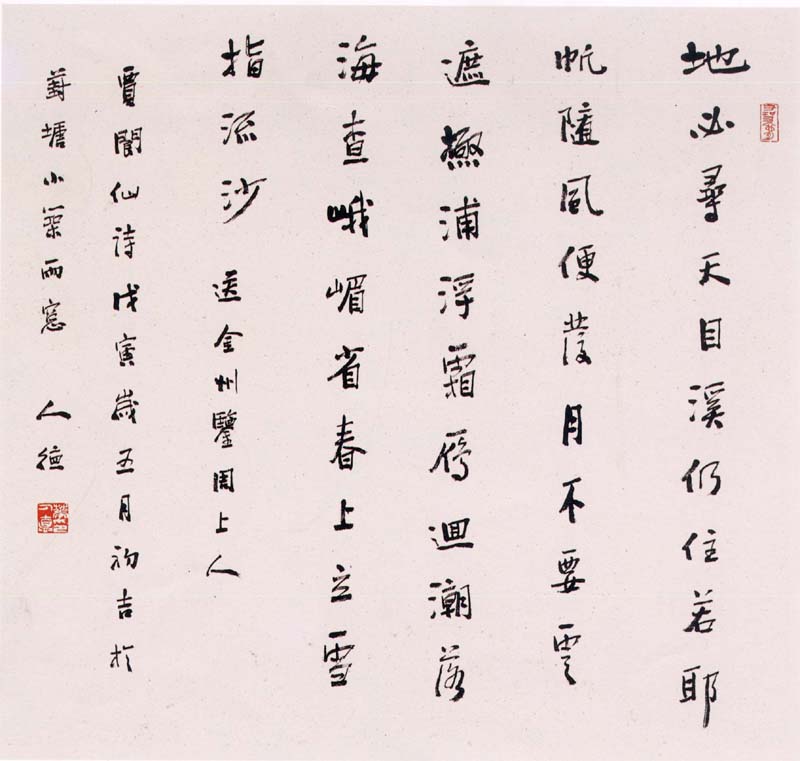 地必尋天目溪仍住若耶
帆隨風便發月不要雲
遮極浦浮霜雁迴潮落
海查峨嵋省春上立雪
指流沙 送金州鑒周上人
賈閬仙詩戊寅歲五月初吉於
葑塘小築雨窓 人德